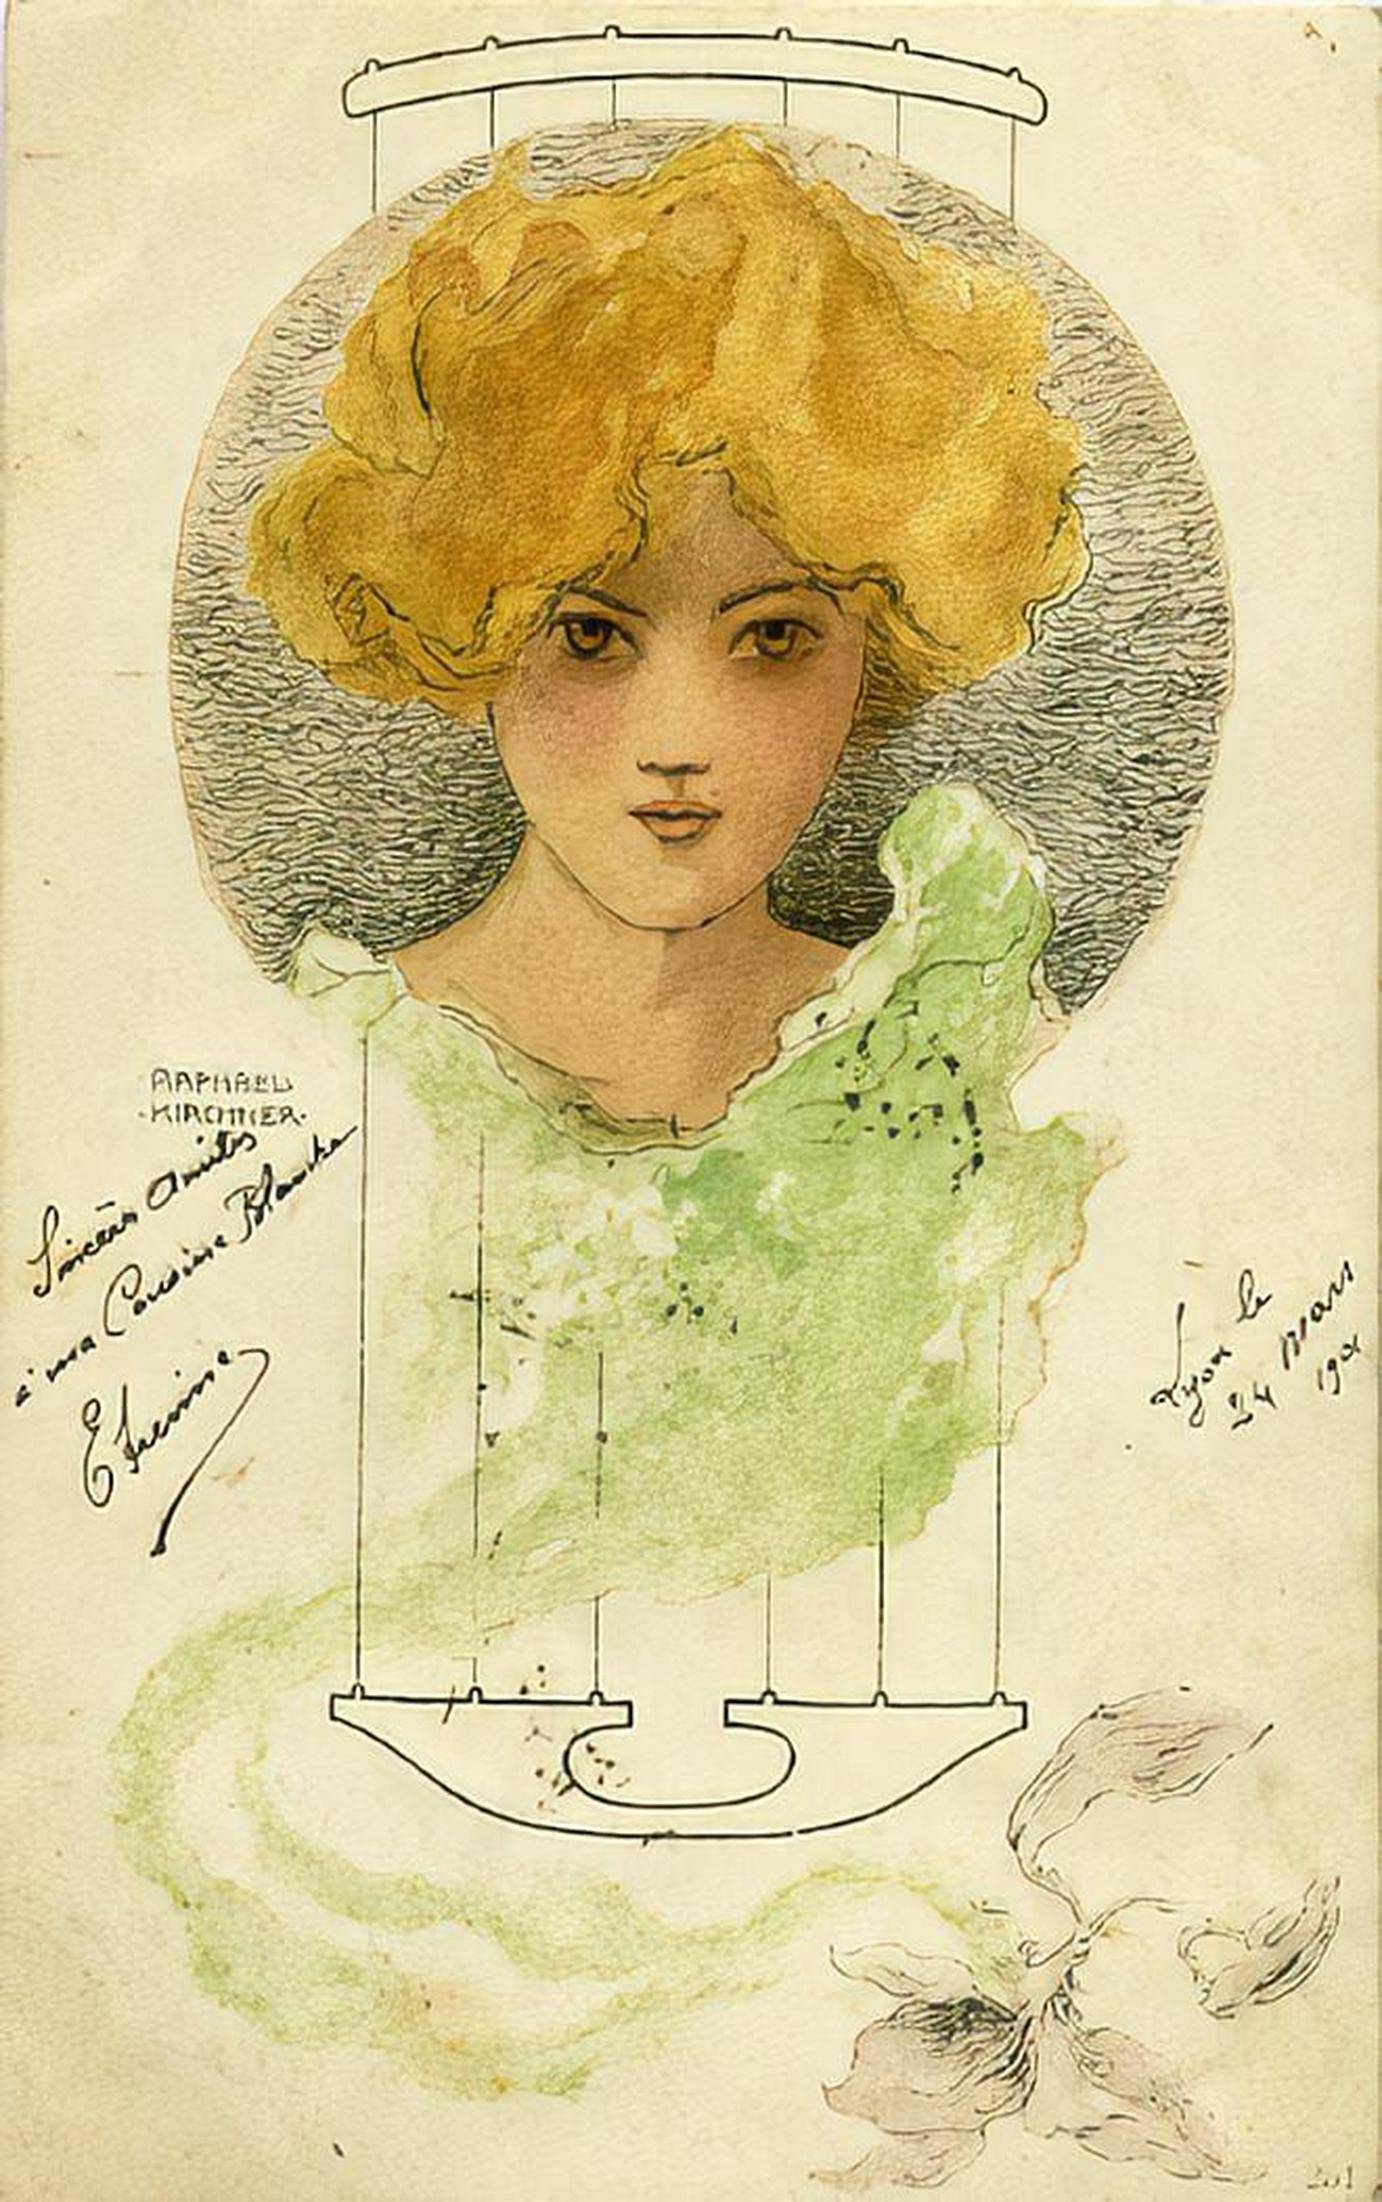 RAPHAEL
KIRCHNER
Sincères Amitiés
à ma Cousine Blanche
Lyon le
24 Mars
190